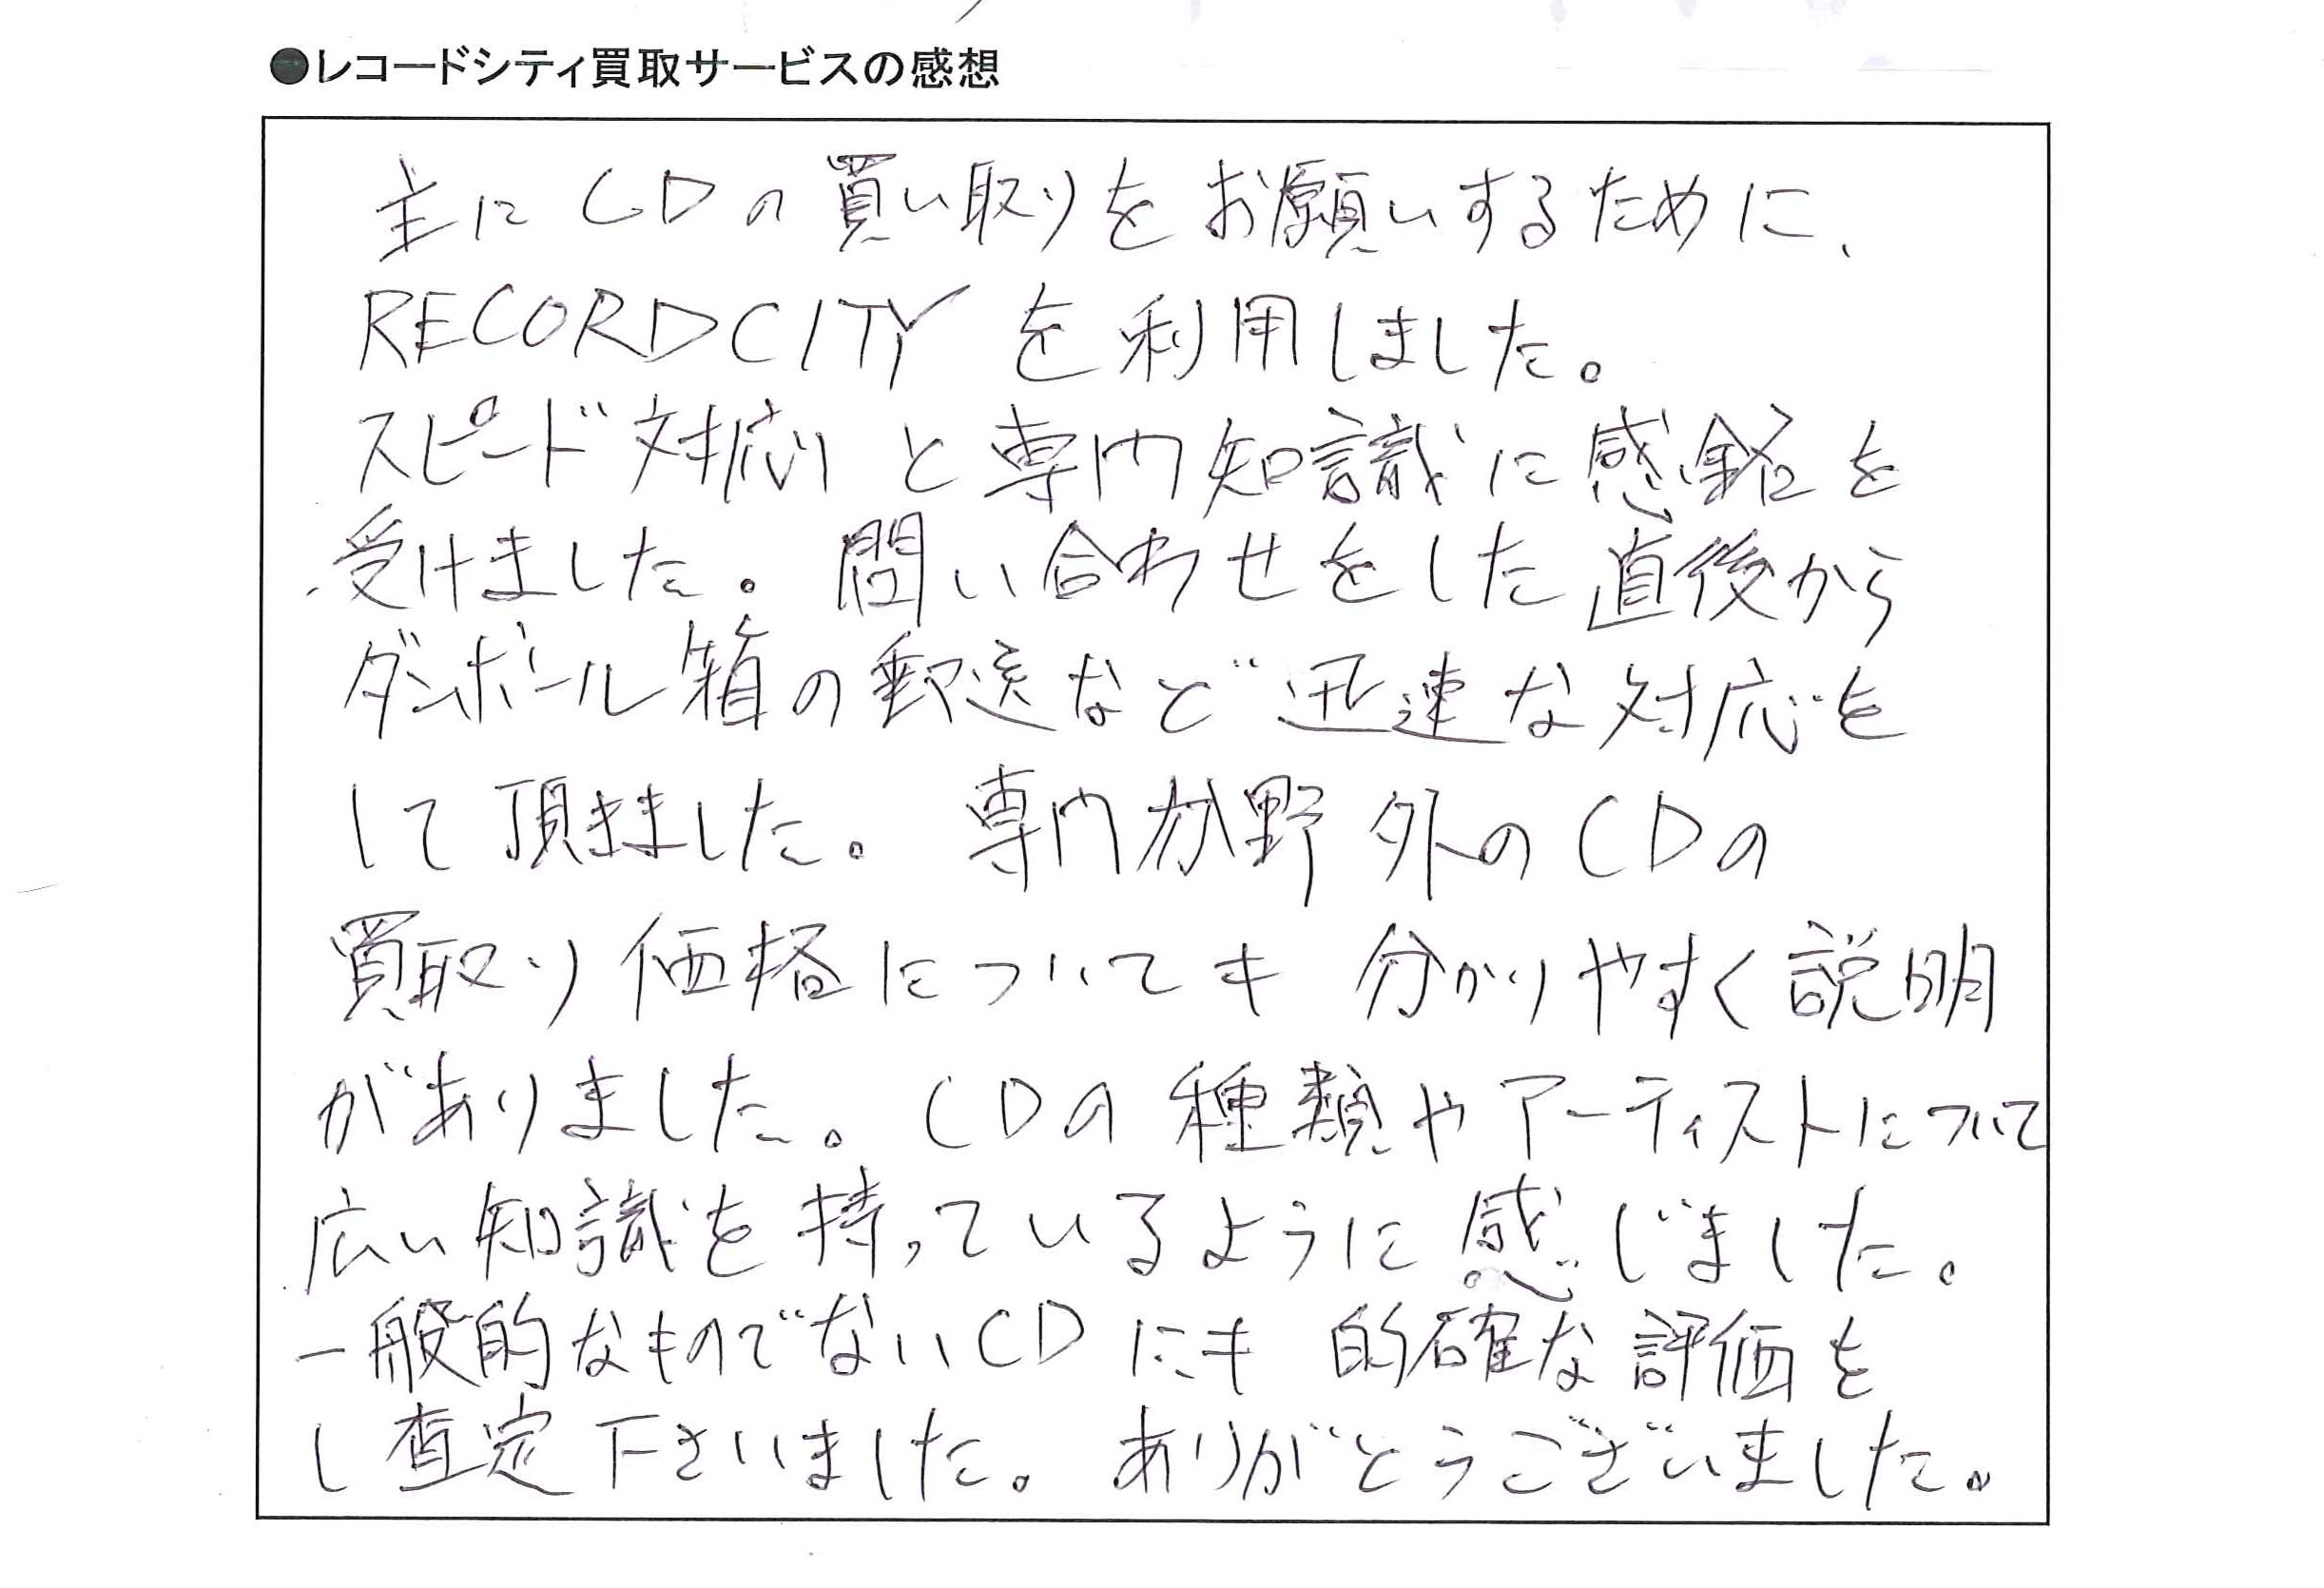 ●レコードシティ買取サービスの感想
主にCDの買い取りをお願いするために、
RECORDCITYを利用しました。
スピード対応と専門知識に感銘を
受けました。問い合わせをした直後から
ダンボール箱の郵送など迅速な対応を
して頂きました。専門分野外のCDの
買取り価格についても分かりやすく説明
がありました。CDの種類やアーティストについて
広い知識を持っているように感じました。
一般的なものでないCDにも的確な評価を
し査定下さいました。ありがとうございました。